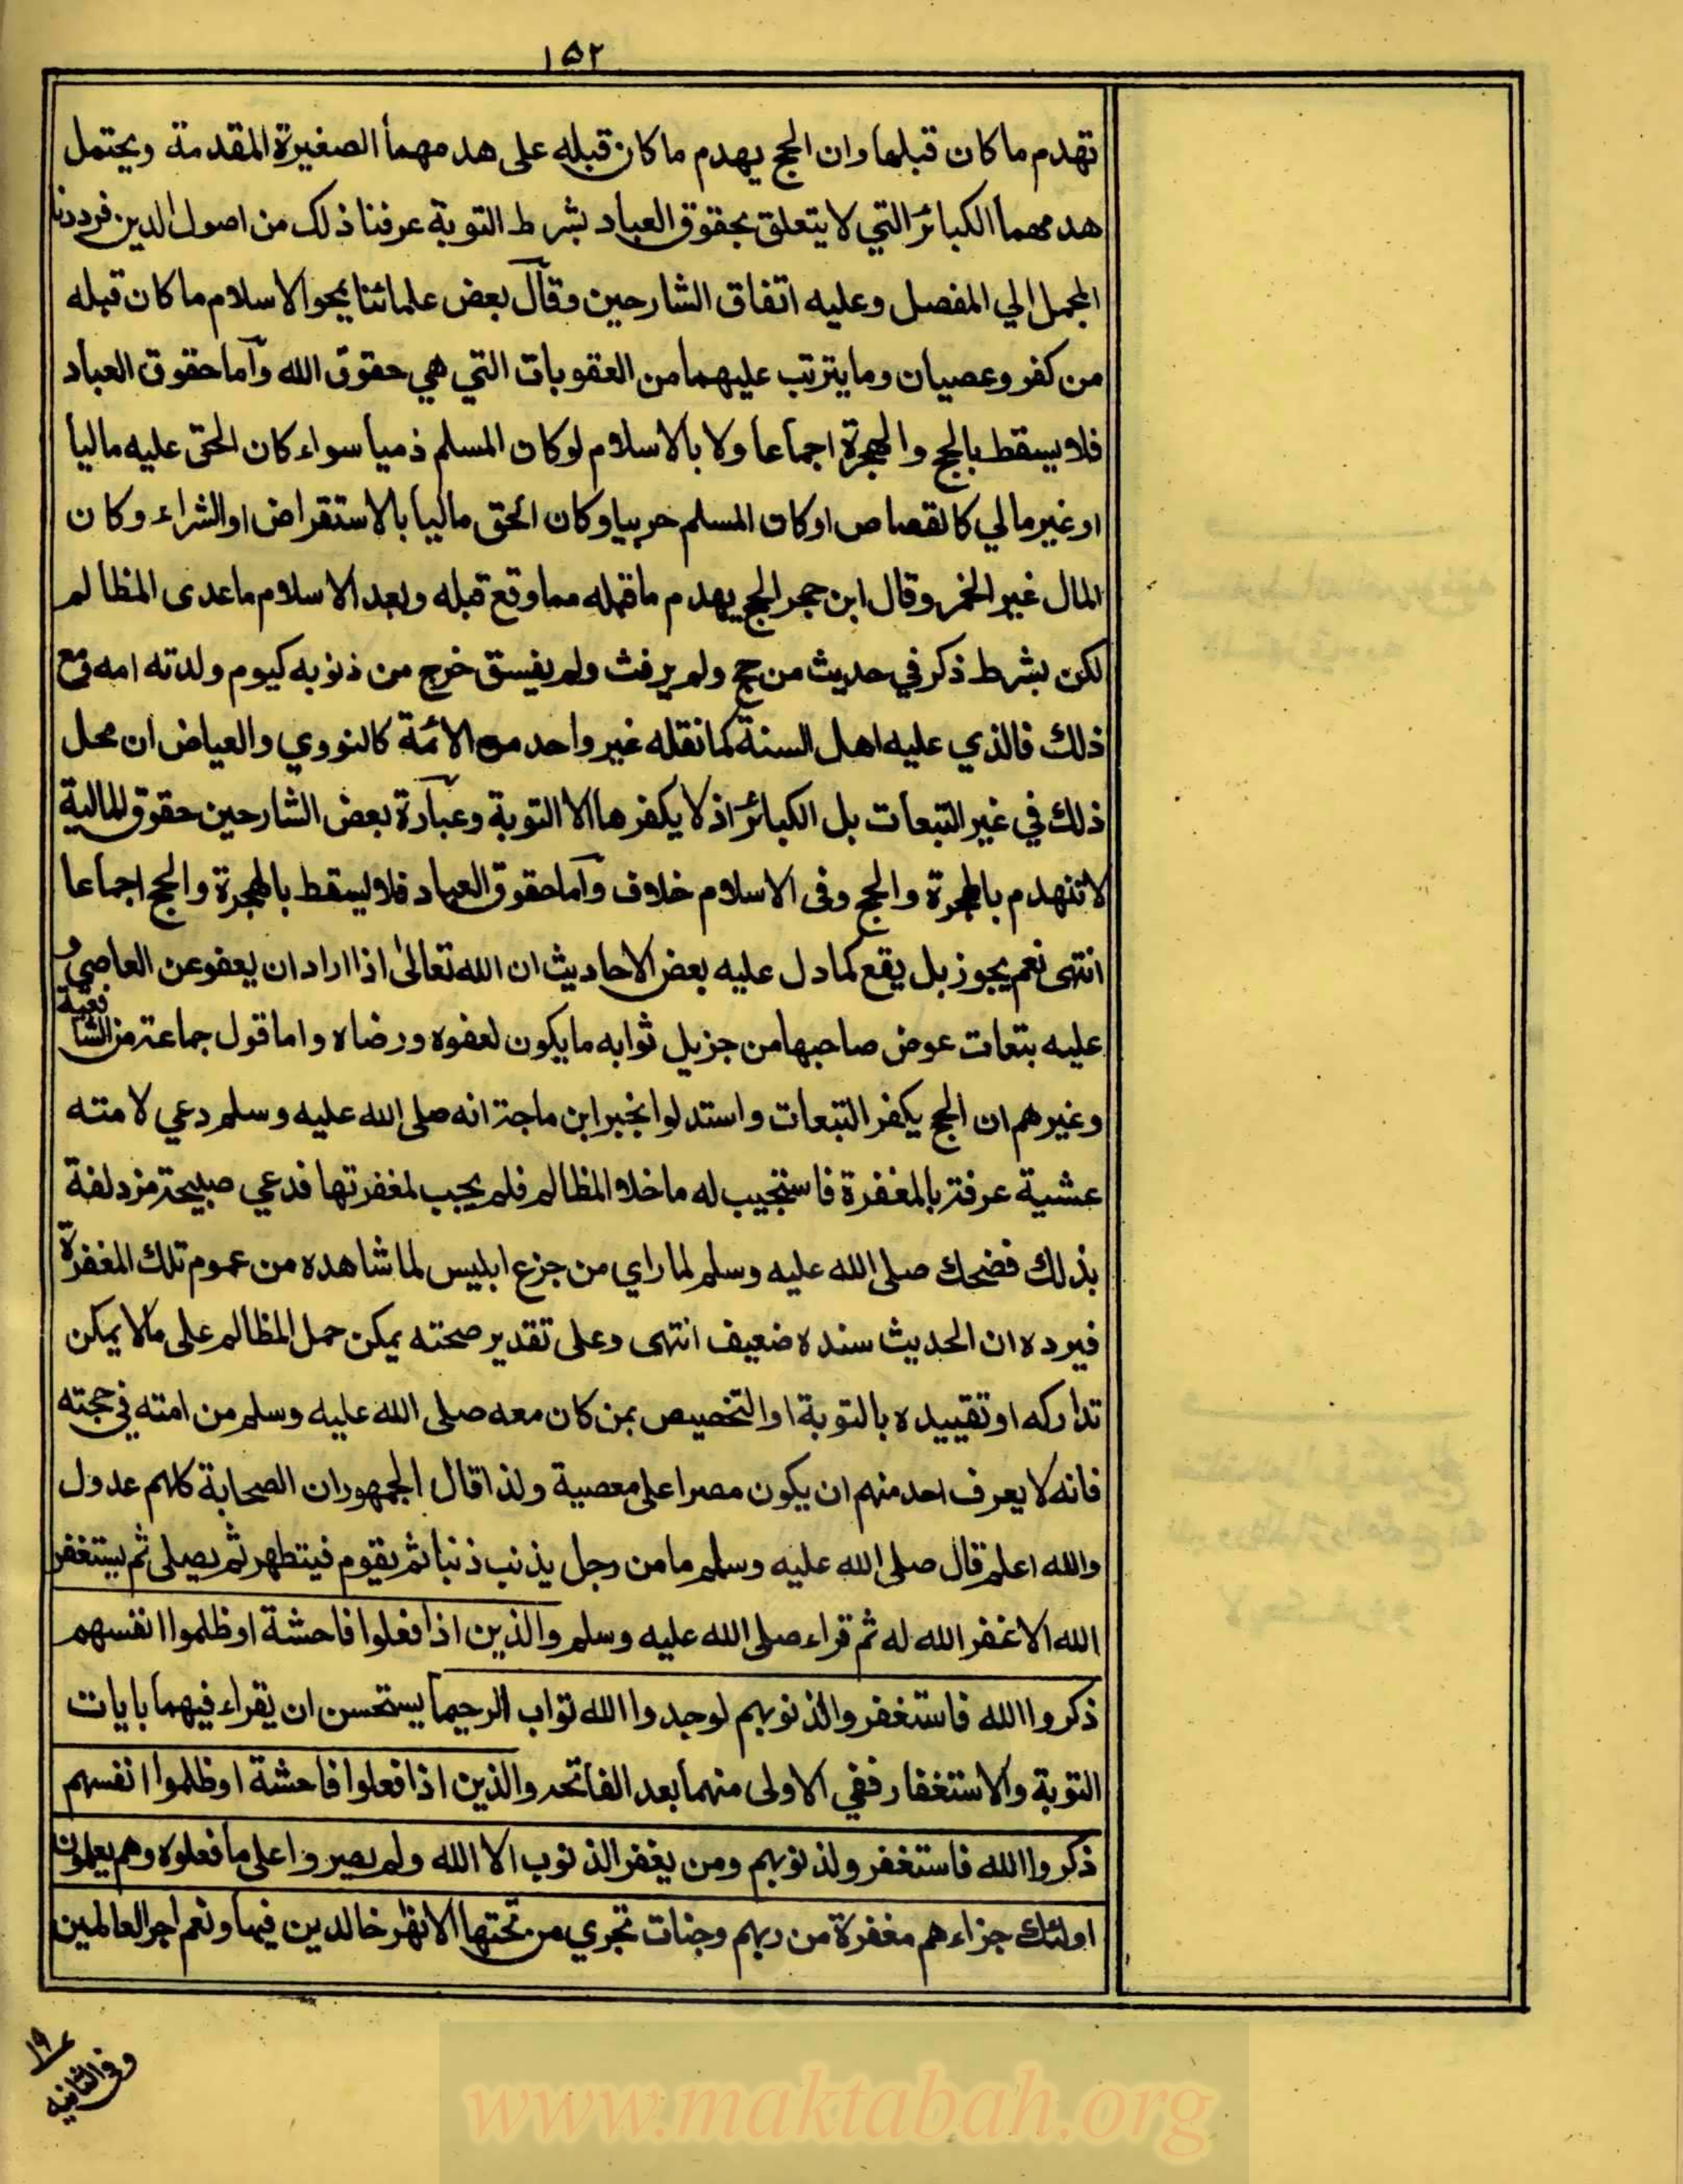 ١٥٢
تهدم ما كان قبلها وان الحج يهدم ما كان قبله على هدمهما الصغيرة المقدمة ويحتمل
هدمهما الكبائر التي لا يتعلق بحقوق العباد بشرط التوبة عرفنا ذلك من اصول الدين فرددنا
المجمل الي المفصل وعليه اتفاق الشارحين وقال بعض علمائنا يمحوا الاسلام ما كان قبله
من كفر وعصيان وما يترتب عليهما من العقوبات التي هي حقوق الله وآما حقوق العباد
فلا يسقط بالحج والهجرة اجماعا ولا بالاسلام لو كان المسلم ذميا سواء كان الحق عليه ماليا
او غير مالي كالقصاص او كان المسلم حربيا وكان الحق ماليا بالاستقراض او الشراء وكان
المال غير الخمر وقال ابن حجر الحج يهدم ما قبله مما وقع قبله وبعد الاسلام ما عدى المظالم
لكن بشرط ذكر في حديث من حج ولم يرفث ولم يفسق خرج من ذنوبه كيوم ولدته امه ومع
ذلك فالذي عليه اهل السنة كما نقله غير واحد من الائمة كالنووي والعياض ان محل
ذلك في غير التبعات بل الكبائر اذ لا يكفرها الا التوبة وعبارة بعض الشارحين حقوق المالية
لا تنهدم بالهجرة والحج وفى الاسلام خلاف وآما حقوق العباد فلا يسقط بالهجرة والحج اجماعا
انتهى نعم يجوز بل يقع كما دل عليه بعض الاحاديث ان الله تعالىٰ اذا اراد ان يعفو عن العاصي و
عليه بتعات عوض صاحبها من جزيل ثوابه ما يكون لعفوه ورضاه واما قول جماعة من الشافعية
وغيرهم ان الحج يكفر التبعات واستدلوا بخبر ابن ماجة انه صلى الله عليه وسلم دعي لامته
عشية عرفة بالمغفرة فاستجيب له ما خلا المظالم فلم يجب لمغفرتها فدعي صبيحة مزدلفة
بذلك فضحك صلى الله عليه وسلم لما راي من جزع ابليس لما شاهده من عموم تلك المغفرة
فيرده ان الحديث سنده ضعيف انتهى وعلى تقدير صحته يمكن حمل المظالم على ما لا يمكن
تداركه او تقييده بالتوبة او التخصيص بمن كان معه صلى الله عليه وسلم من امته في حجته
فانه لا يعرف احد منهم ان يكون مصرا على معصية ولذا قال الجمهور ان الصحابة كلهم عدول
والله اعلم قال صلى الله عليه وسلم ما من رجل يذنب ذنبا ثم يقوم فيتطهر ثم يصلى ثم يستغفر
الله الا غفر الله له ثم قراء صلى الله عليه وسلم والذين اذا فعلوا فاحشة او ظلموا انفسهم
ذكروا الله فاستغفروا لذنوبهم لوجدوا الله تواب الرحيما يستحسن ان يقراء فيهما بايات
التوبة والاستغفار ففي الاولى منهما بعد الفاتحه والذين اذا فعلوا فاحشة او ظلموا انفسهم
ذكروا الله فاستغفر ولذنوبهم ومن يغفر الذنوب الا الله ولم يصروا على ما فعلوه وهم يعلمون
اولئك جزاءهم مغفرة من ربهم وجنات تجري من تحتها الانهر خالدين فيها ونعم اجر العالمين
وفى الثانيه
www.maktabah.org